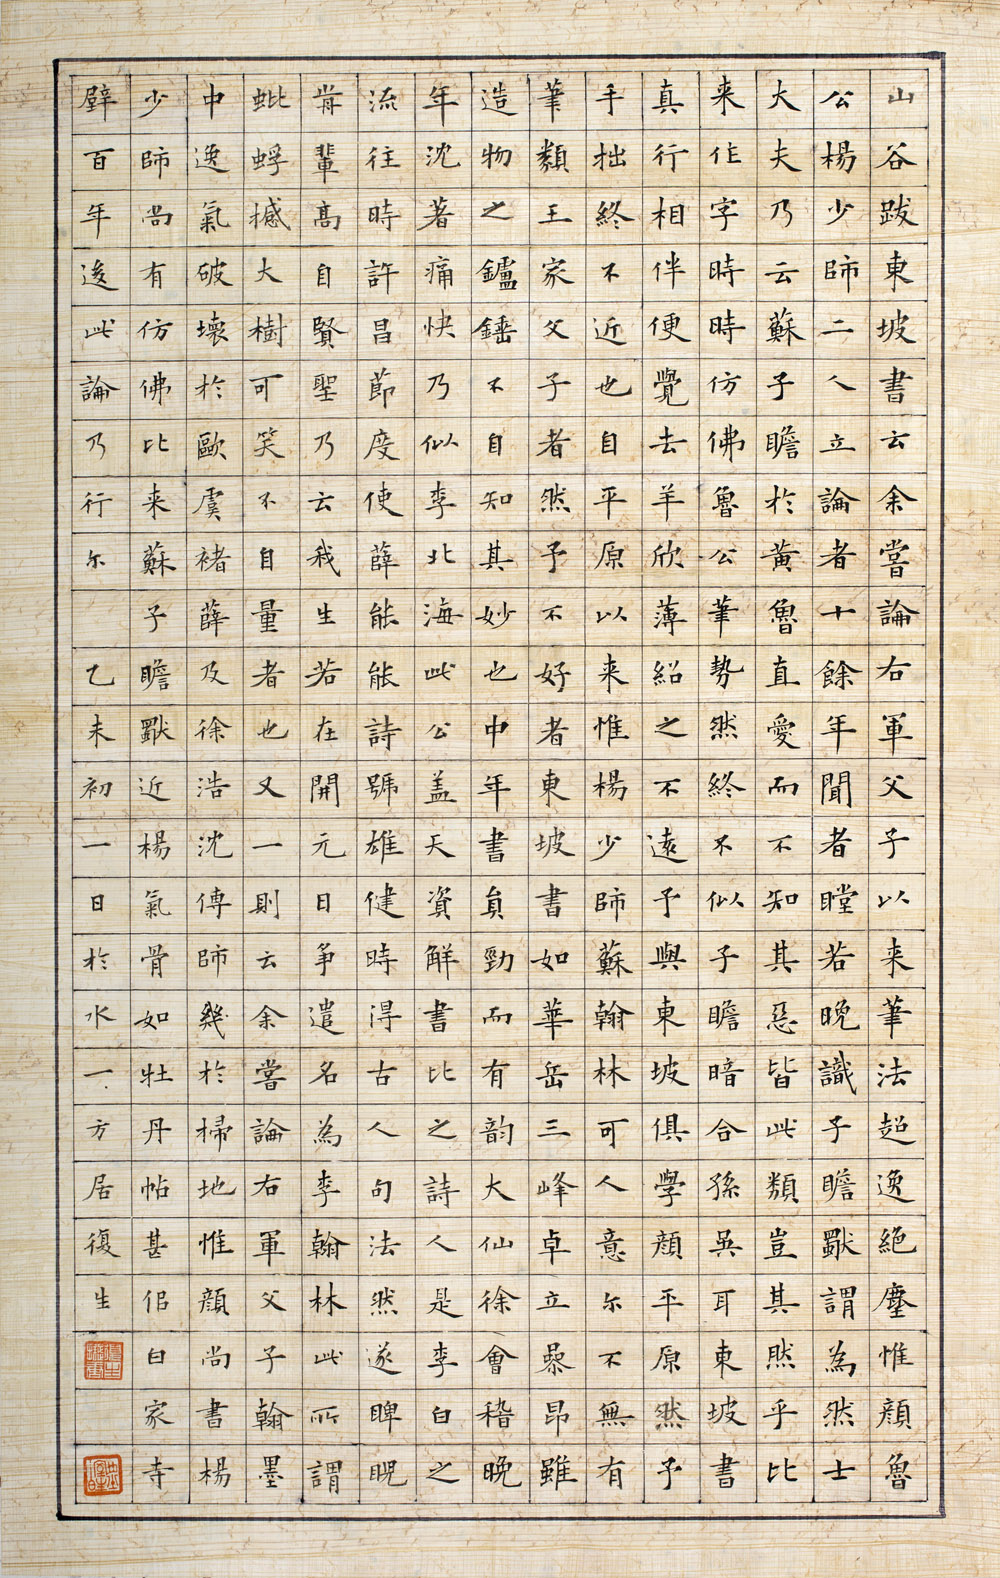 山谷跋東坡書云余嘗論右軍父子以来筆法超逸絕塵惟顔魯
公楊少師二人立論者十餘年聞者瞠若晚識子瞻獸謂為然士
大夫乃云蘇子瞻於黃魯直愛而不知其惡皆此類豈其然乎比
来作字時時仿佛魯公筆勢然終不似子瞻暗合孫吳耳東坡書
真行相伴便覺去羊欣薄紹之不遠予與東坡俱學顔平原然予
手拙終不近也自平原以来惟楊少師蘇翰林可人意尔不無有
筆類王家父子者然予不好者東坡書如華岳三峰卓立曑昂雖
造物之鑪錘不自知其妙也中年書貟勁而有韵大仙徐會稽晚
年沈著痛快乃似李北海此公盖天資解書比之詩人是李白之
流往時許昌節度使薛能能詩號雄健時得古人句法然遂睥睨
前輩高自賢聖乃云我生若在開元日爭遣名為李翰林此所謂
蚍蜉撼大樹可笑不自量者也又一則云余嘗論右軍父子翰墨
中逸氣破壞於歐虞褚薛及徐浩沈傳師幾於掃地惟顔尚書楊
少師尚有仿佛比来蘇子瞻獸近楊氣骨如牡丹帖甚佀白家寺
壁百年後此論乃行尔 乙未初一日於水一方居復生